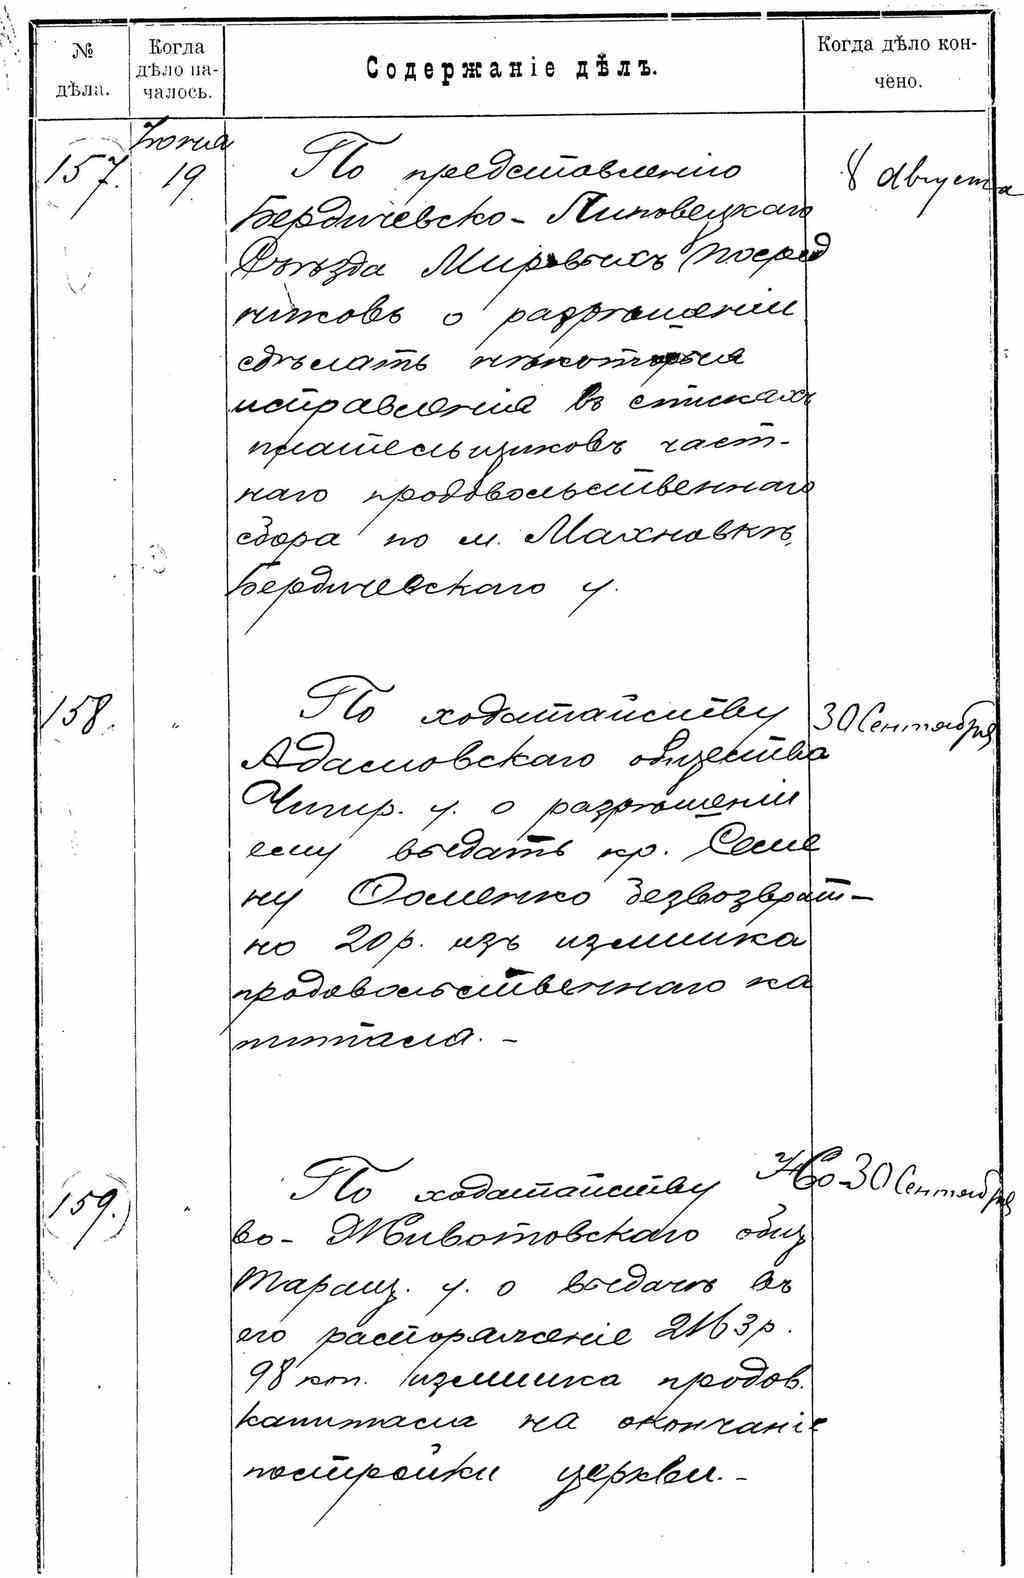 № дѣла.
Когда дѣло на-
чалось.
Содержаніе дѣлъ.
Когда дѣло кон-
чено.
Іюня
157. 19 По представленію 8 Августа
Бердичевско-Липовецкаго
Съѣзда Мировыхъ Посред
никовъ о разрѣшеніи
сдѣлать нѣкоторыя
исправленія въ спискахъ
плательщиковъ част-
наго продовольственнаго
сбора по м. Махновкѣ,
Бердичевскаго у.
158. " По ходатайству 30 Сентября
Адамовскаго общества
Чигир. у. о разрѣшеніи
ему выдать кр. Семе
ну Фоменко безвозврат-
но 20 р. изъ излишка
продовольственнаго ка
питала. -
159. " По ходатайству Но- 30 Сентября
во-Животовскаго общ
Таращ. у. о выдачѣ въ
его распоряженіе 2163 р.
98 коп. излишка продов.
капитала на окончаніе
постройки церкви. -